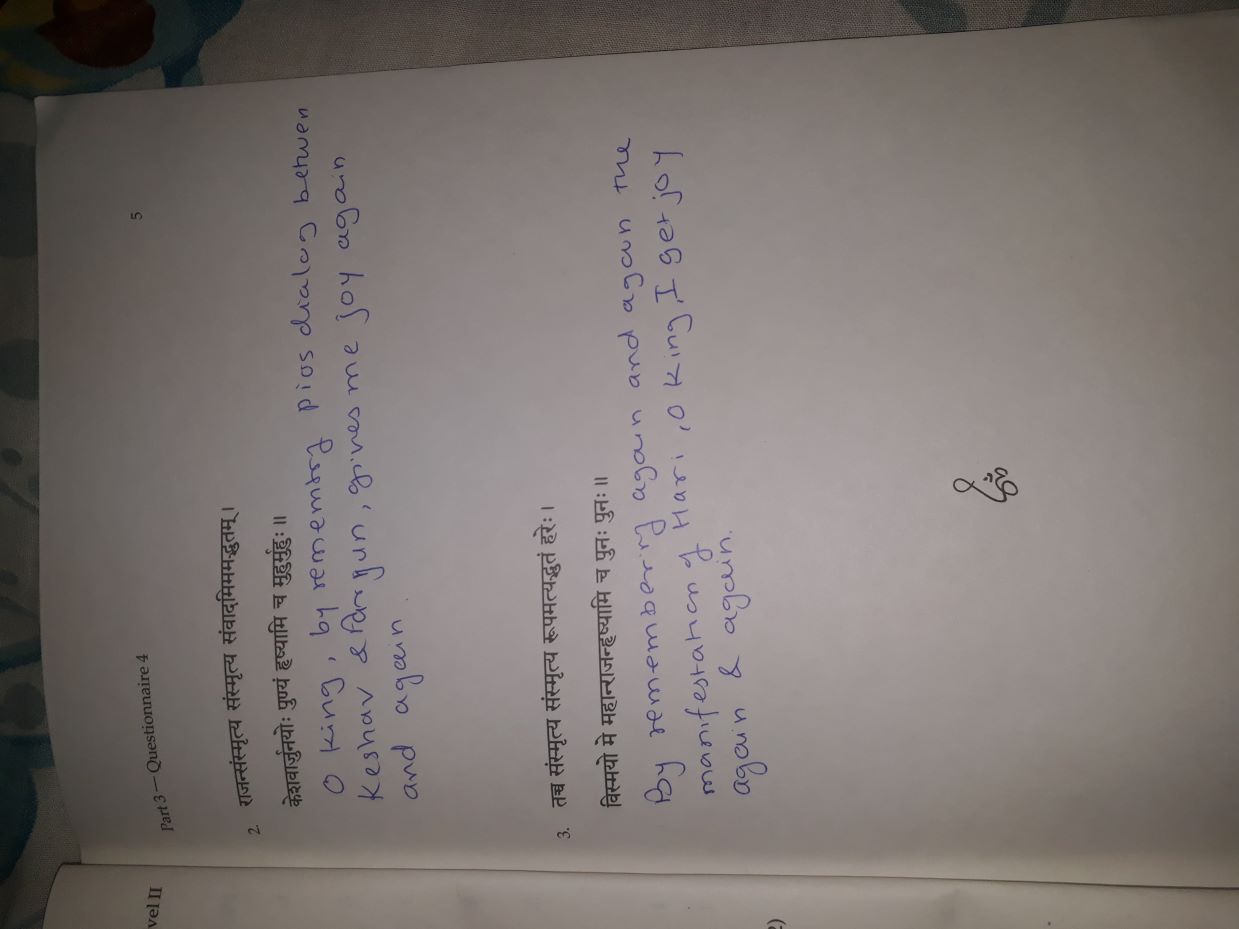 vel II
Part 3 — Questionnaire 4
5
2. राजन्संस्मृत्य संस्मृत्य संवादमिममद्भुतम् ।
केशवार्जुनयोः पुण्यं हृष्यामि च मुहुर्मुहुः ॥
O King, by remembrg pios dialog betwen
Keshav & Arjun, gives me joy again
and again.
3. तच्च संस्मृत्य संस्मृत्य रूपमत्यद्भुतं हरेः ।
विस्मयो मे महान्राजन्हृष्यामि च पुनः पुनः ॥
By rememberng again and again the
manifestation of Hari, O King, I get joy
again & again.
2)
ॐ